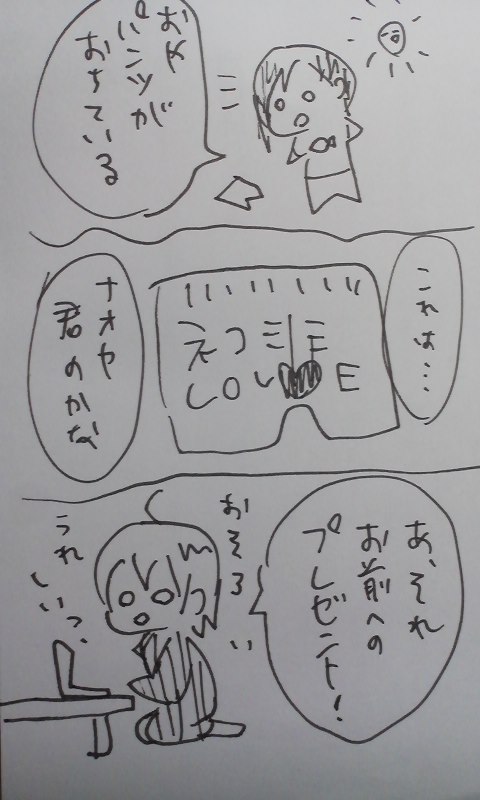 おや
パンツが
おちている
これは…
ナオヤ
君のかな
あ、それ
お前への
プレゼント！
おそろい
うれしいっ、